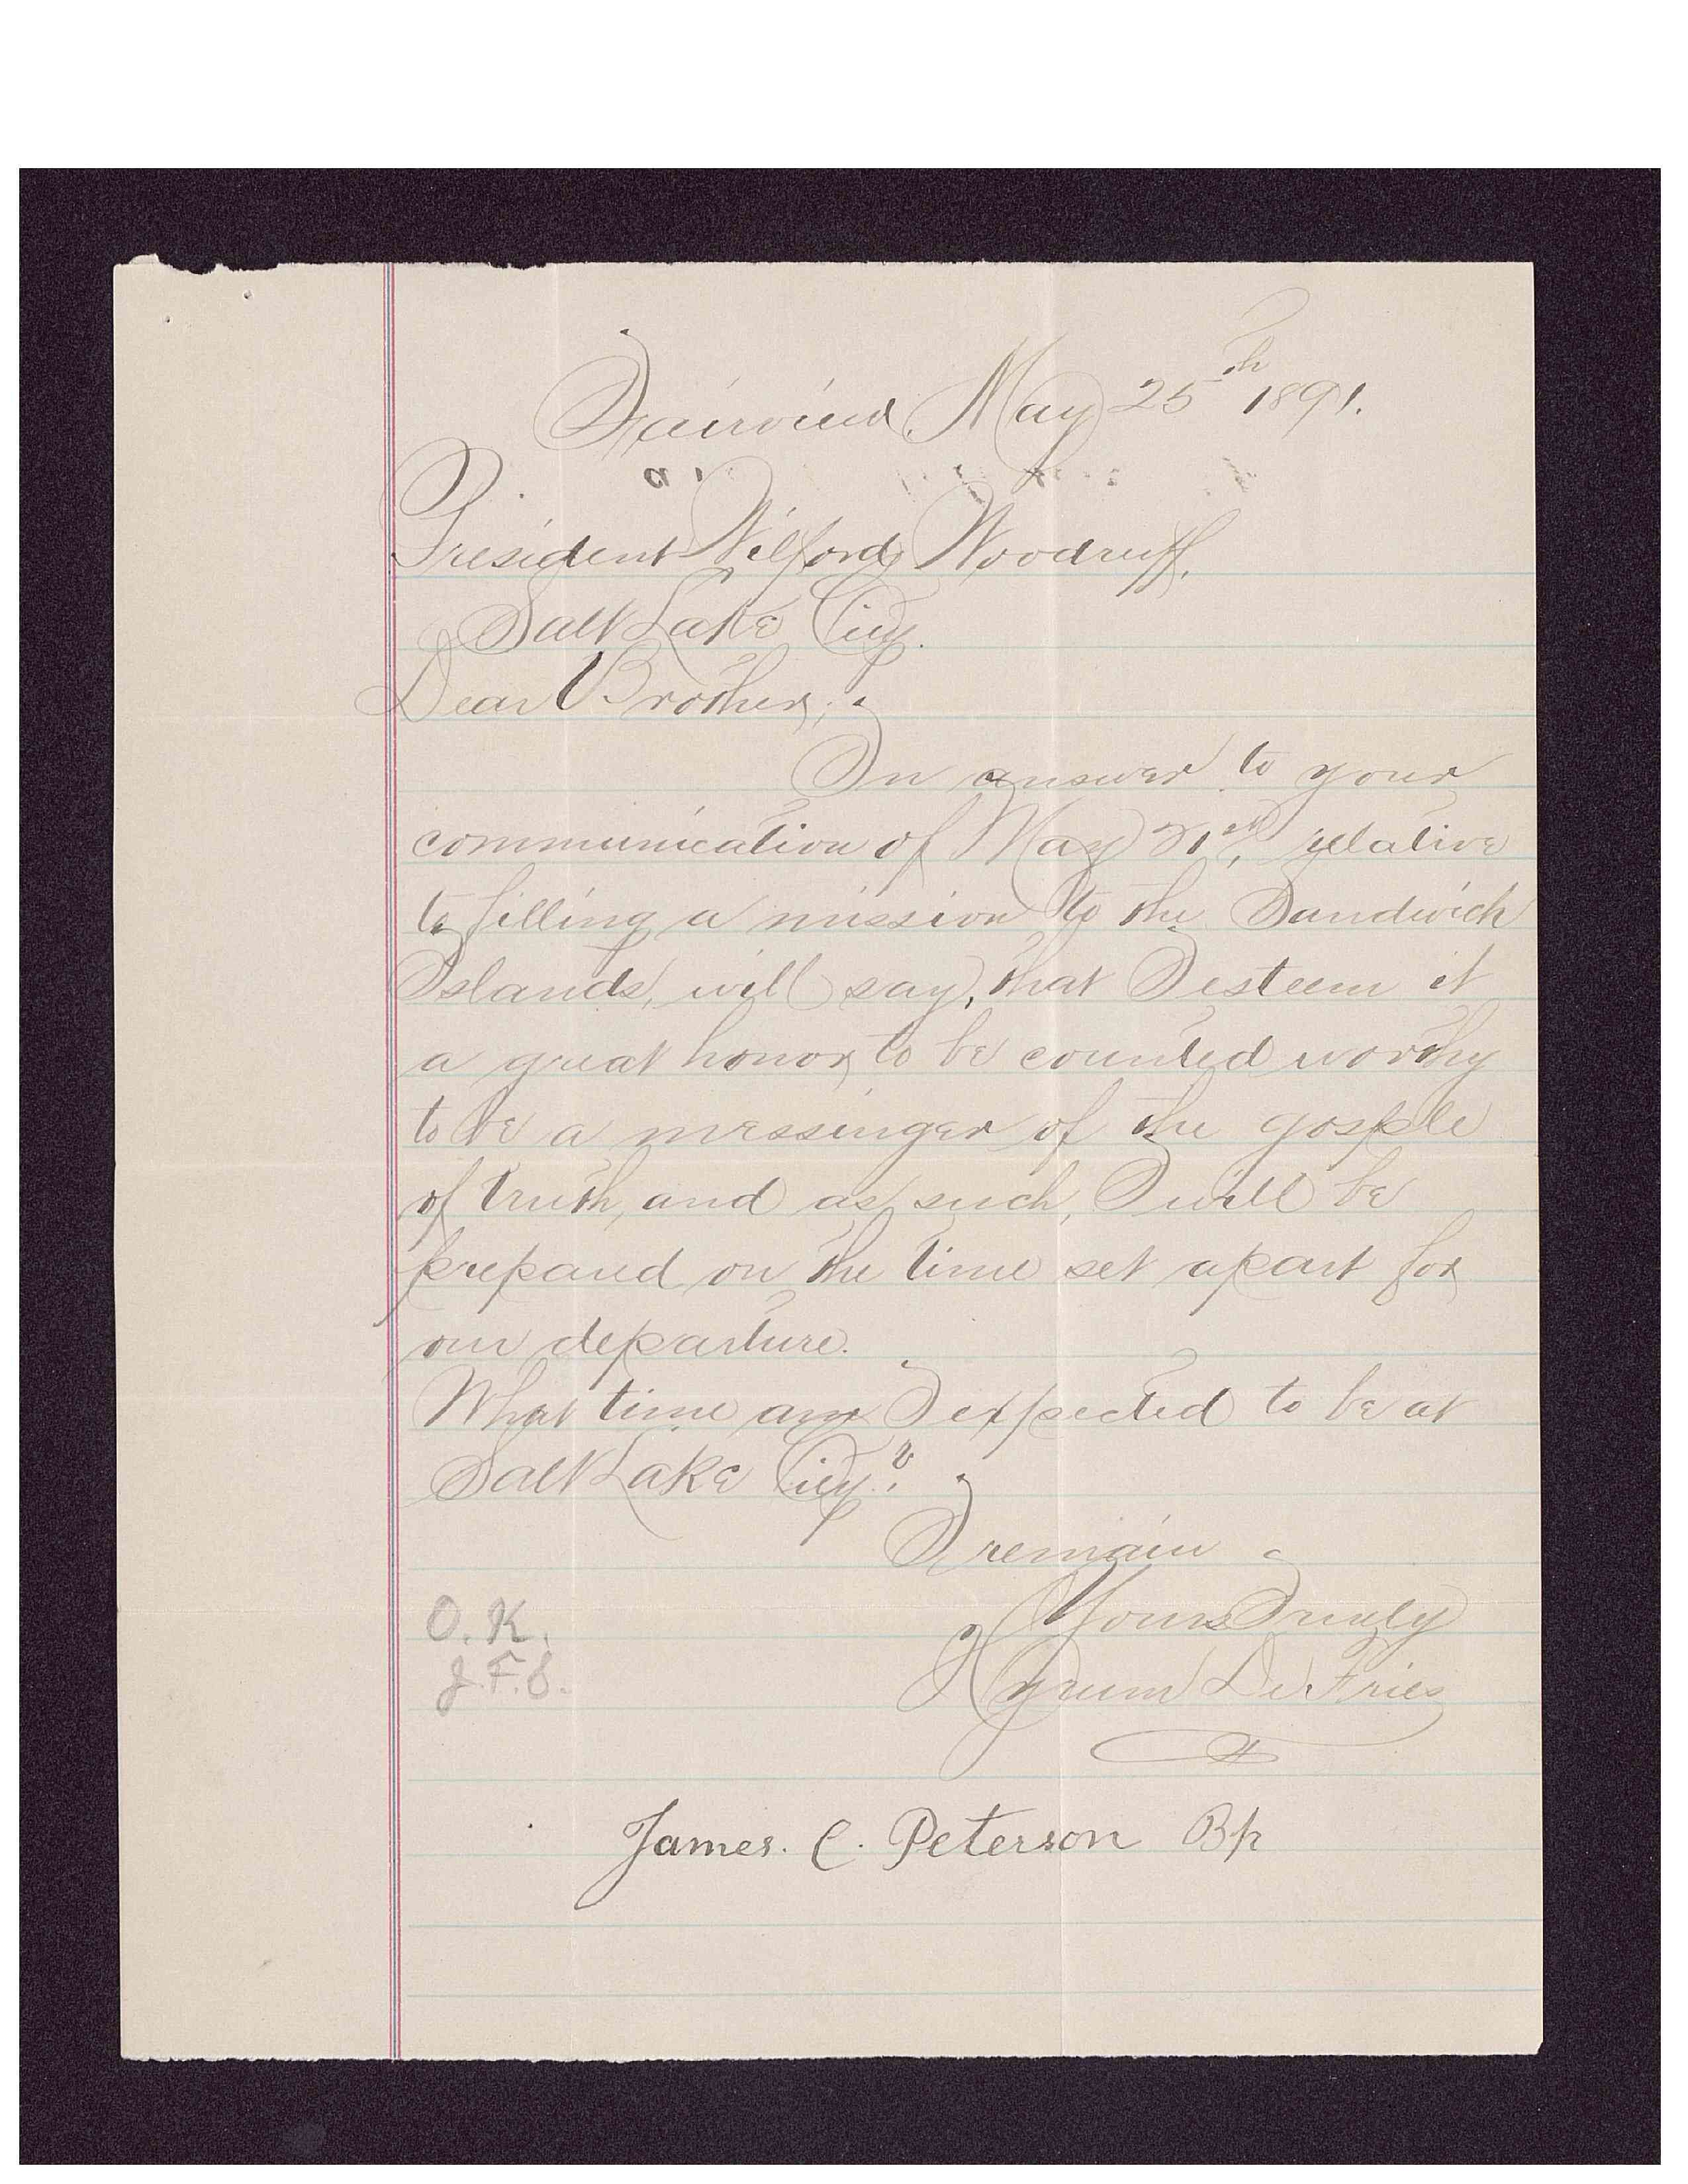 Fairview May 25th 1891.
President Wilford Woodruff,
Salt Lake City.
Dear Brother;
In answer to your
communication of May 21st, relative
to filling a mission to the Sandwich
Islands, will say, that I esteem it
a great honor to be counted worthy
to be a messinger of the gosple
of truth, and as such, I will be
prepared on the time set apart for
our departure.
What time am I expected to be at
Salt Lake City?
I remain
Yours Truly
Hyrum De Fries
O. K.
J. F. S.
James. C. Peterson Bp